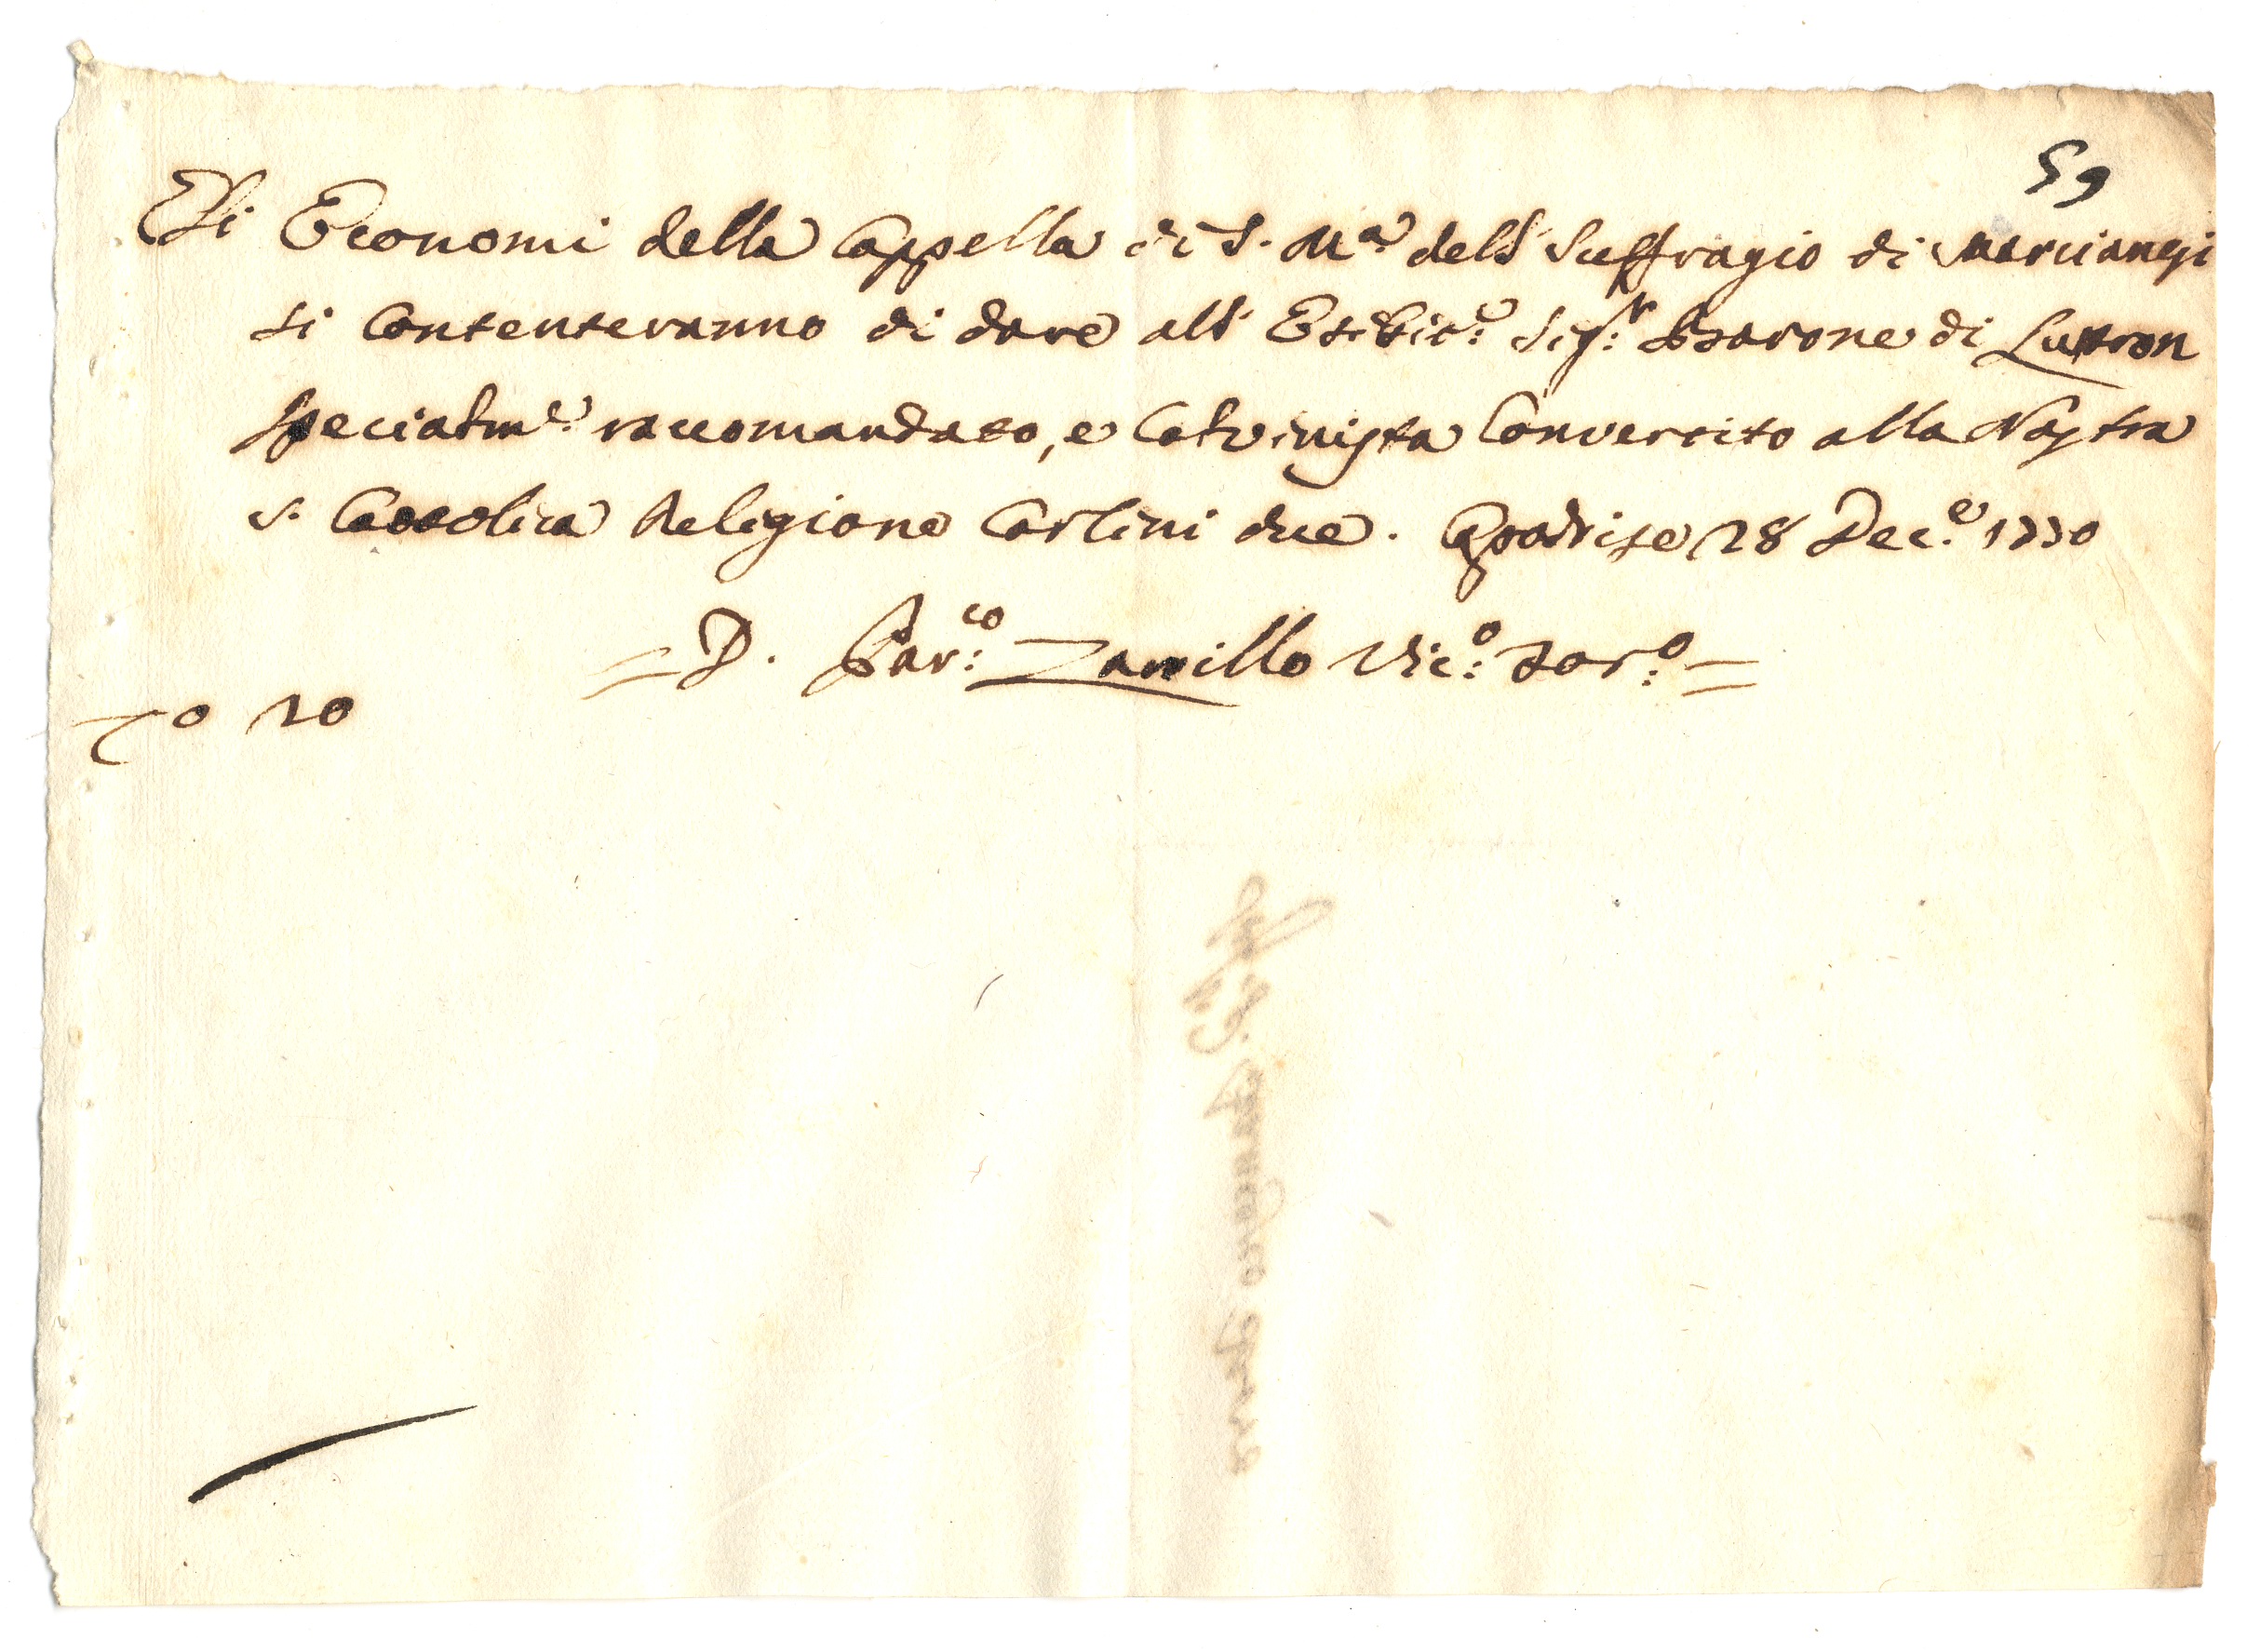 59
Gli Economi della Cappella di S. M.a dell Suffragio di Marcianesi
si contenteranno di dare all' Esibit.e Sig.r Barone di Lutron
specialm.e raccomandato, e Calvinista convertito alla Nostra
S. Cattolica Religione Carlini due. Capodrise 28 Dec.e 1730
= D. Par.co Zarrillo Vic.o For.o =
0 20